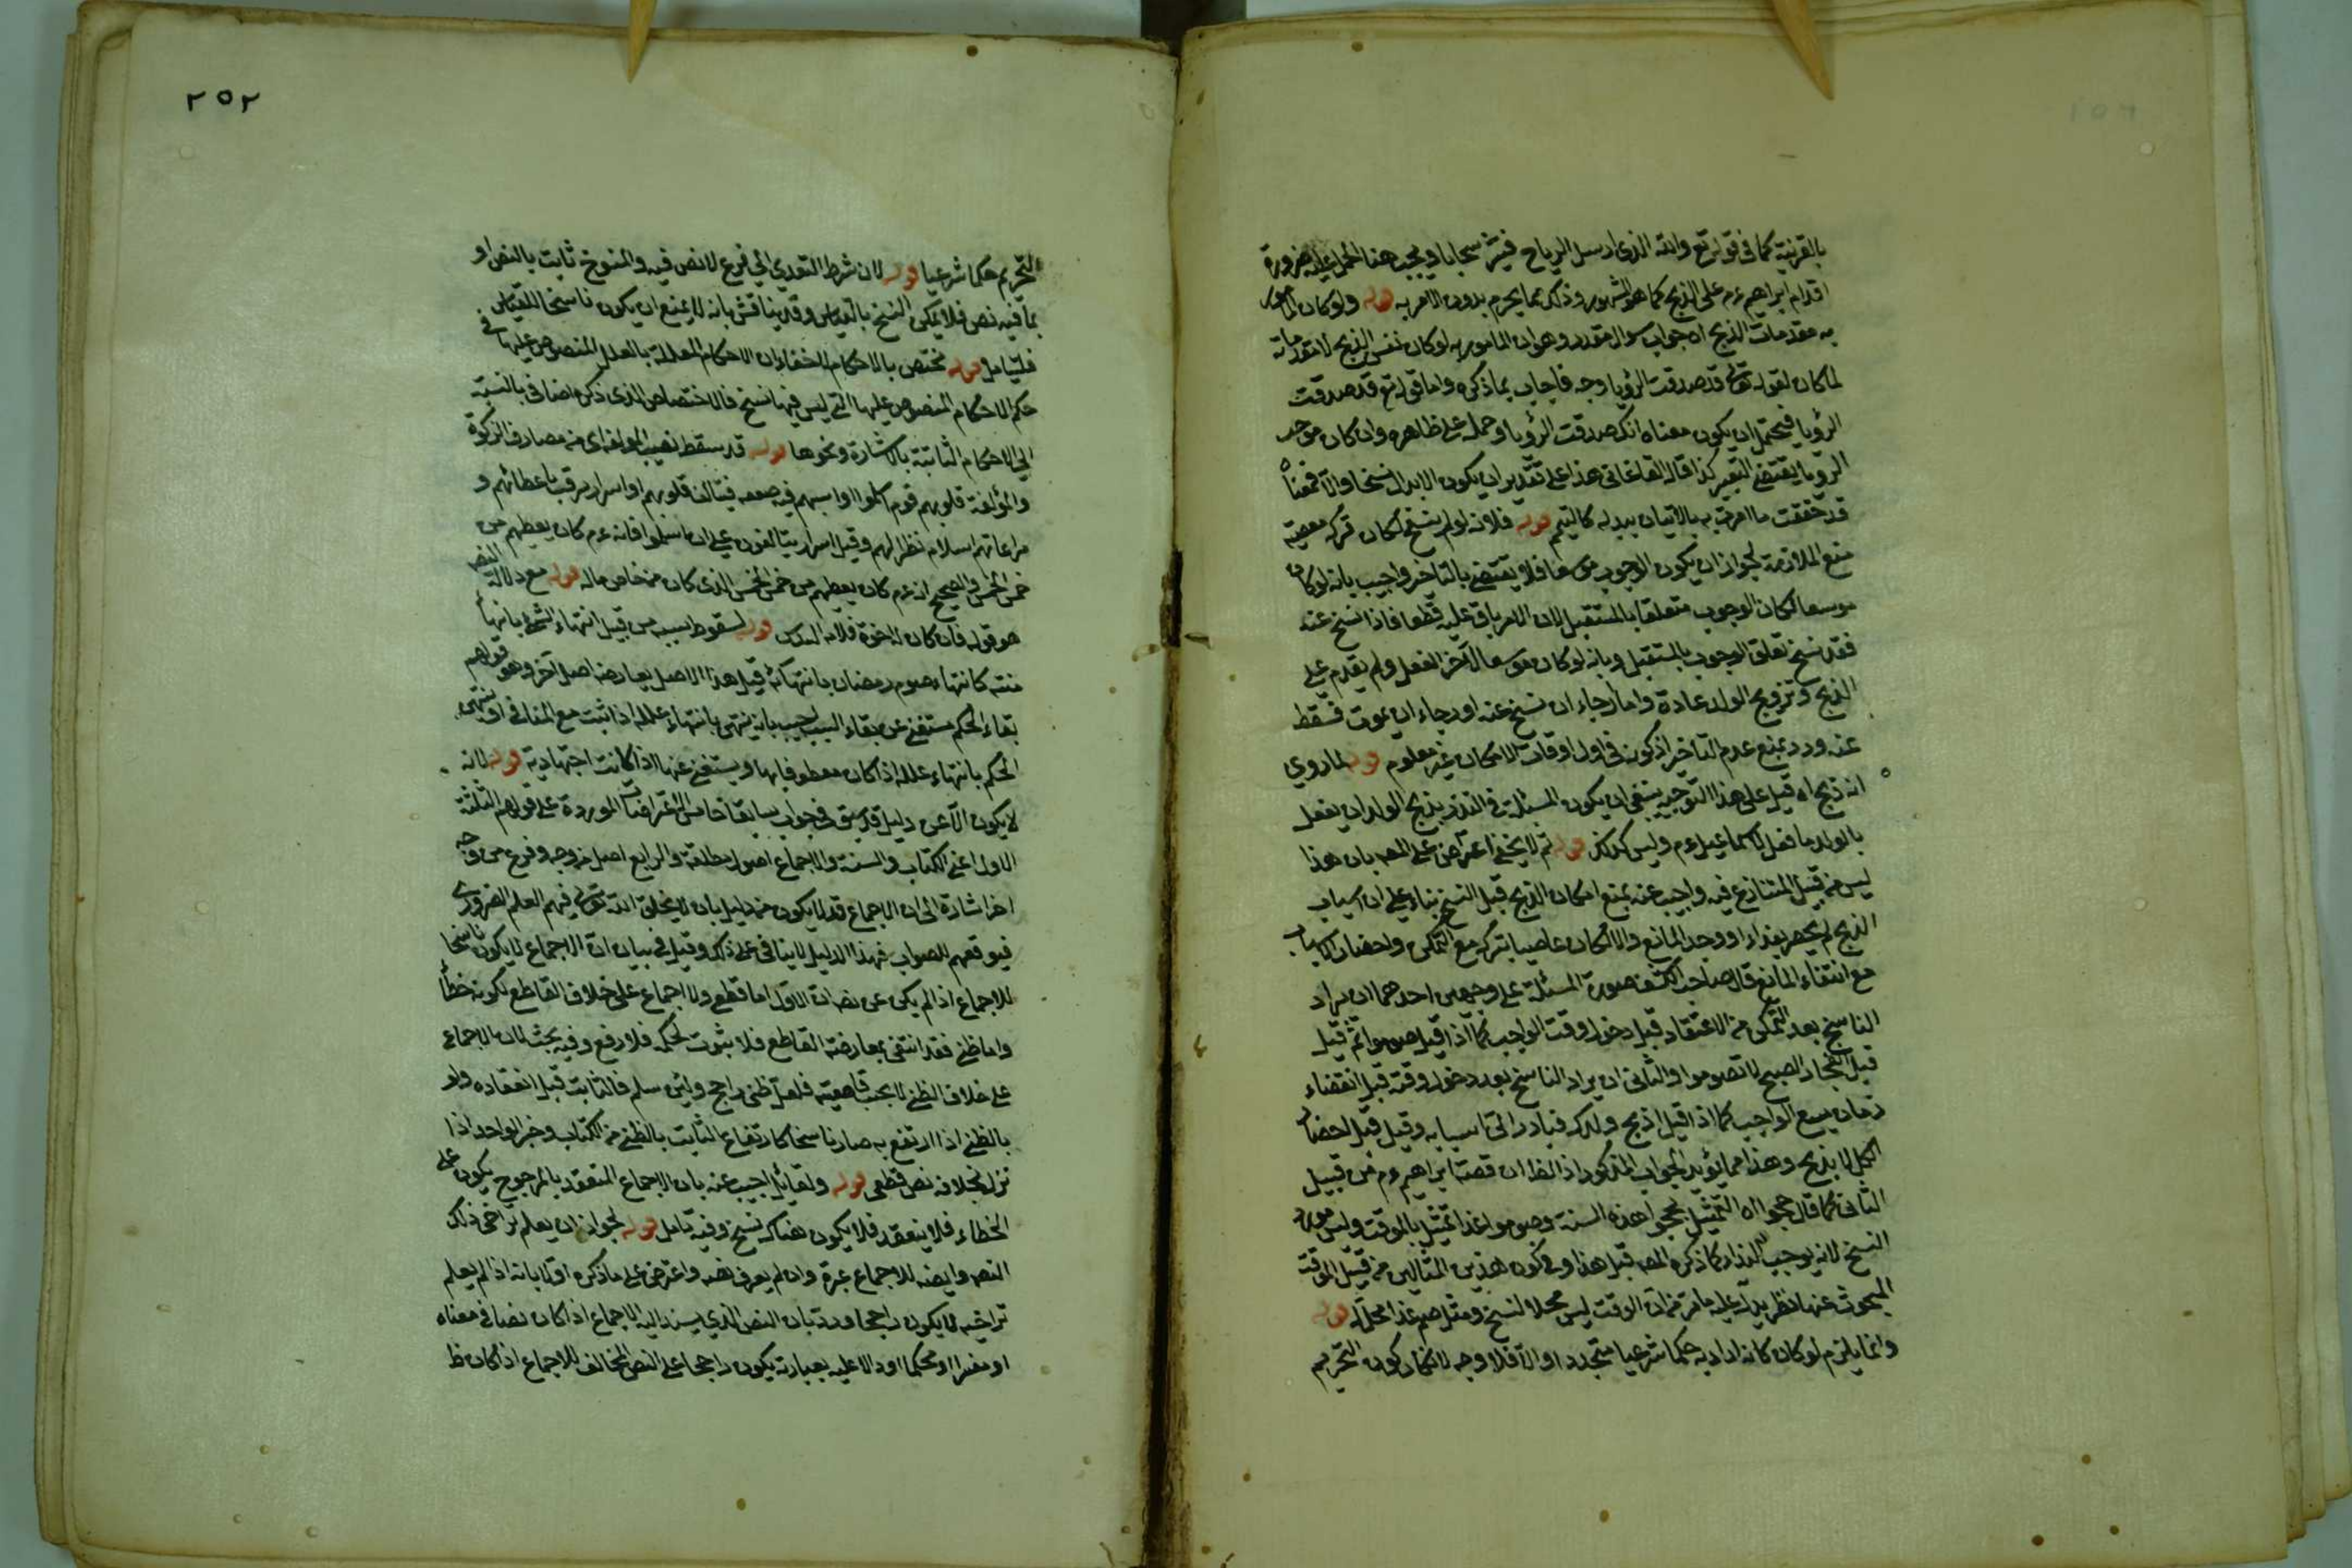 بالقرينة كما في قوله تع والله الذي ارسل الرياح فتثير سحابا ويجب هنا الحمل عليه ضرورة
اقدام ابراهيم عم على الذبح كما هو المشهور وذلك مما يحرم بدون الامر به قوله ولو كان المأمور
به مقدمات الذبح اه جواب سوال مقدر وهو ان المامور به لو كان نفس الذبح لا مقدماته
لما كان لقوله تعالى قد صدقت الرؤيا وجه فاجاب بما ذكره واما قوله تع قد صدقت
الرؤيا فيحتمل ان يكون معناه انك صدقت الرؤيا وحمله على ظاهره وان كان موجب
الرؤيا يقتضي التعبير كذا قاله القاغاني هذا على تقدير ان يكون الابدال نسخا والا فمعناه
قد حققت ما امرت به بالاتيان ببدله كالتيمم قوله فلانه لو لم ينسخ لكان تركه معصية
منع الملازمة لجواز ان يكون الوجوب موسعا فلا يعصى بالتاخير واجيب بانه لو كان
موسعا لكان الوجوب متعلقا بالمستقبل لان الامر باق عليه قطعا فاذا نسخ عنه
فقد نسخ تعلق الوجوب بالمستقبل وبانه لو كان موسعا لاخر الفعل ولم يقدم على
الذبح وترويج الولد عادة واما رجاء ان نسخ عنه او رجاء ان يموت فسقط
عنه ورد بمنع عدم التاخير اذ كونه في اول اوقات الامكان غير معلوم قوله لما روي
انه ذبح اه قيل على هذا التوجيه ينبغي ان يكون المسئلة في النذر بذبح الولد ان يفعل
بالولد ما فعل باسماعيل عم وليس كذلك قوله ثم لا يخفى اعترض على المص بان هذا
ليس من قبيل المتنازع فيه واجيب عنه بمنع امكان الذبح قبل النسخ بناء على ان اسباب
الذبح لم يحضر بعد او وجد المانع والا لكان عاصيا بتركه مع التمكن واحضار الاسباب
مع انتفاء المانع قال صاحب الكشف صورة المسئلة على وجهين احدهما ان يراد
الناسخ بعد التمكن من الاعتقاد قبل دخول وقت الواجب كما اذا قيل صوموا ثم قيل
قبل انفجار الصبح لا تصوموا والثاني ان يراد الناسخ بعد دخول وقته قبل انقضاء
زمان يسع الواجب كما اذا قيل اذبح ولدك فبادر الى اسبابه وقيل قبل احضار
الكل لا يذبح وهذا مما يؤيد الجواب المذكور اذ الظ ان قصة ابراهيم عم من قبيل
الثاني كما قال حجوا اه التمثيل بحجوا هذه السنة وصوموا غدا تمثيل بالموقت وليس مورد
النسخ لانه يوجب البدا كما ذكره المص قبل هذا وفي كون هذين المثالين من قبيل الموقت
المبحوث عنها نظر يدل عليه ما مر من ان الوقت ليس محلا لنسخ ومثل صم غدا محل له قوله
وانما يلزم لو كان كانه اراد به حكما شرعيا متجددا والا فلا وجه لانكار كون التحريم
٢٥٢
التحريم حكما شرعيا قوله لان شرط التعدي الى فرع لا نص فيه والمنسوخ ثابت بالنص او
بما فيه نص فلا يمكن النسخ بالقياس وقد يناقش بانه لا يمنع ان يكون ناسخا للقياس
فليتامل قوله مختص بالاحكام لا خفاء ان الاحكام المعللة بالعلل المنصوص عليها في
حكم الاحكام المنصوص عليها التي ليس فيها نسخ فالاختصاص الذي ذكره اضافي بالنسبة
الى الاحكام الثابتة بالاشارة ونحوها قوله قد سقط نصيب المولفة اي من مصارف الزكوة
والمؤلفة قلوبهم قوم اسلموا واسبهم فيه ضعف فيتالف قلوبهم او اسرار يرقب باعطائهم و
مراعاتهم اسلام نظرائهم وقيل اسرار يتالفون على ان اسلموا فانه عم كان يعطيهم من
خمس الخمس والصحيح انه عم كان يعطيهم من خمس الخمس الذي كان من خاص ماله قوله مع دلالة النص
هو قوله فان كان له اخوة فلامه السدس قوله لسقوط سببه من قبيل انتهاء الشيء بانتهاء
منته كانتهاء صوم رمضان بانتهائه قيل هذا الاصل يعارضه اصل آخر وهو قولهم
بقاء الحكم مستغنى عن بقاء السبب اجيب بانه ينتهي بانتهاء علله اذا ثبت مع المنافي او ينتهي
الحكم بانتهاء علله اذا كان معطوفا بها ويستغنى عنها اذا كانت اجتهادية قوله لانه
لا يكون الا عن دليل قد سبق في جواب سابقا خامس الاعتراضات الموردة على قولهم الثلثة
الاول اعني الكتاب والسنة والاجماع اصول مطلقة والرابع اصل من وجه وفرع من وجه
اخر اشارة الى ان الاجماع قد لا يكون من دليل بان لا يخلق الله تعالى فيهم العلم الضروري
فيوقعهم للصواب فهذا الدليل لا ينافي على ذلك وقيل في بيان ان الاجماع لا يكون ناسخا
للاجماع اذا لم يكن عن نص ان الاول اما قطع ولا اجماع على خلاف القاطع لكونه خطأ
واما ظني فقد انتفى بمعارضة القاطع فلا ثبوت لحكمه فلا رفع وفيه بحث لان الاجماع
على خلاف الظني لا يجب قاطعيته فلعل ظني راجح ولئن سلم فالثابت قبل انعقاده ولو
بالظني اذا ارتفع به صار ناسخا كارتفاع الثابت بالظني من الكتاب وخبر الواحد اذا
نزل بخلافه نص قطعي قوله ولقائل اجيب عنه بان الاجماع المنعقد بالمرجوح يكون على
الخطاء فلا ينعقد فلا يكون هناك نسخ وفيه تامل قوله لجواز ان يعلم تراخي ذلك
النص وايضه للاجماع عبرة وان لم يعرف نصه واعترض على ما ذكره اولا بانه اذا لم يعلم
تراخيه لا يكون راجحا ورد بان النص الذي يسند اليه الاجماع اذا كان نصا في معناه
او مفسرا او محكما او دالا عليه بعبارته يكون راجحا على النص المخالف للاجماع اذا كان ظ